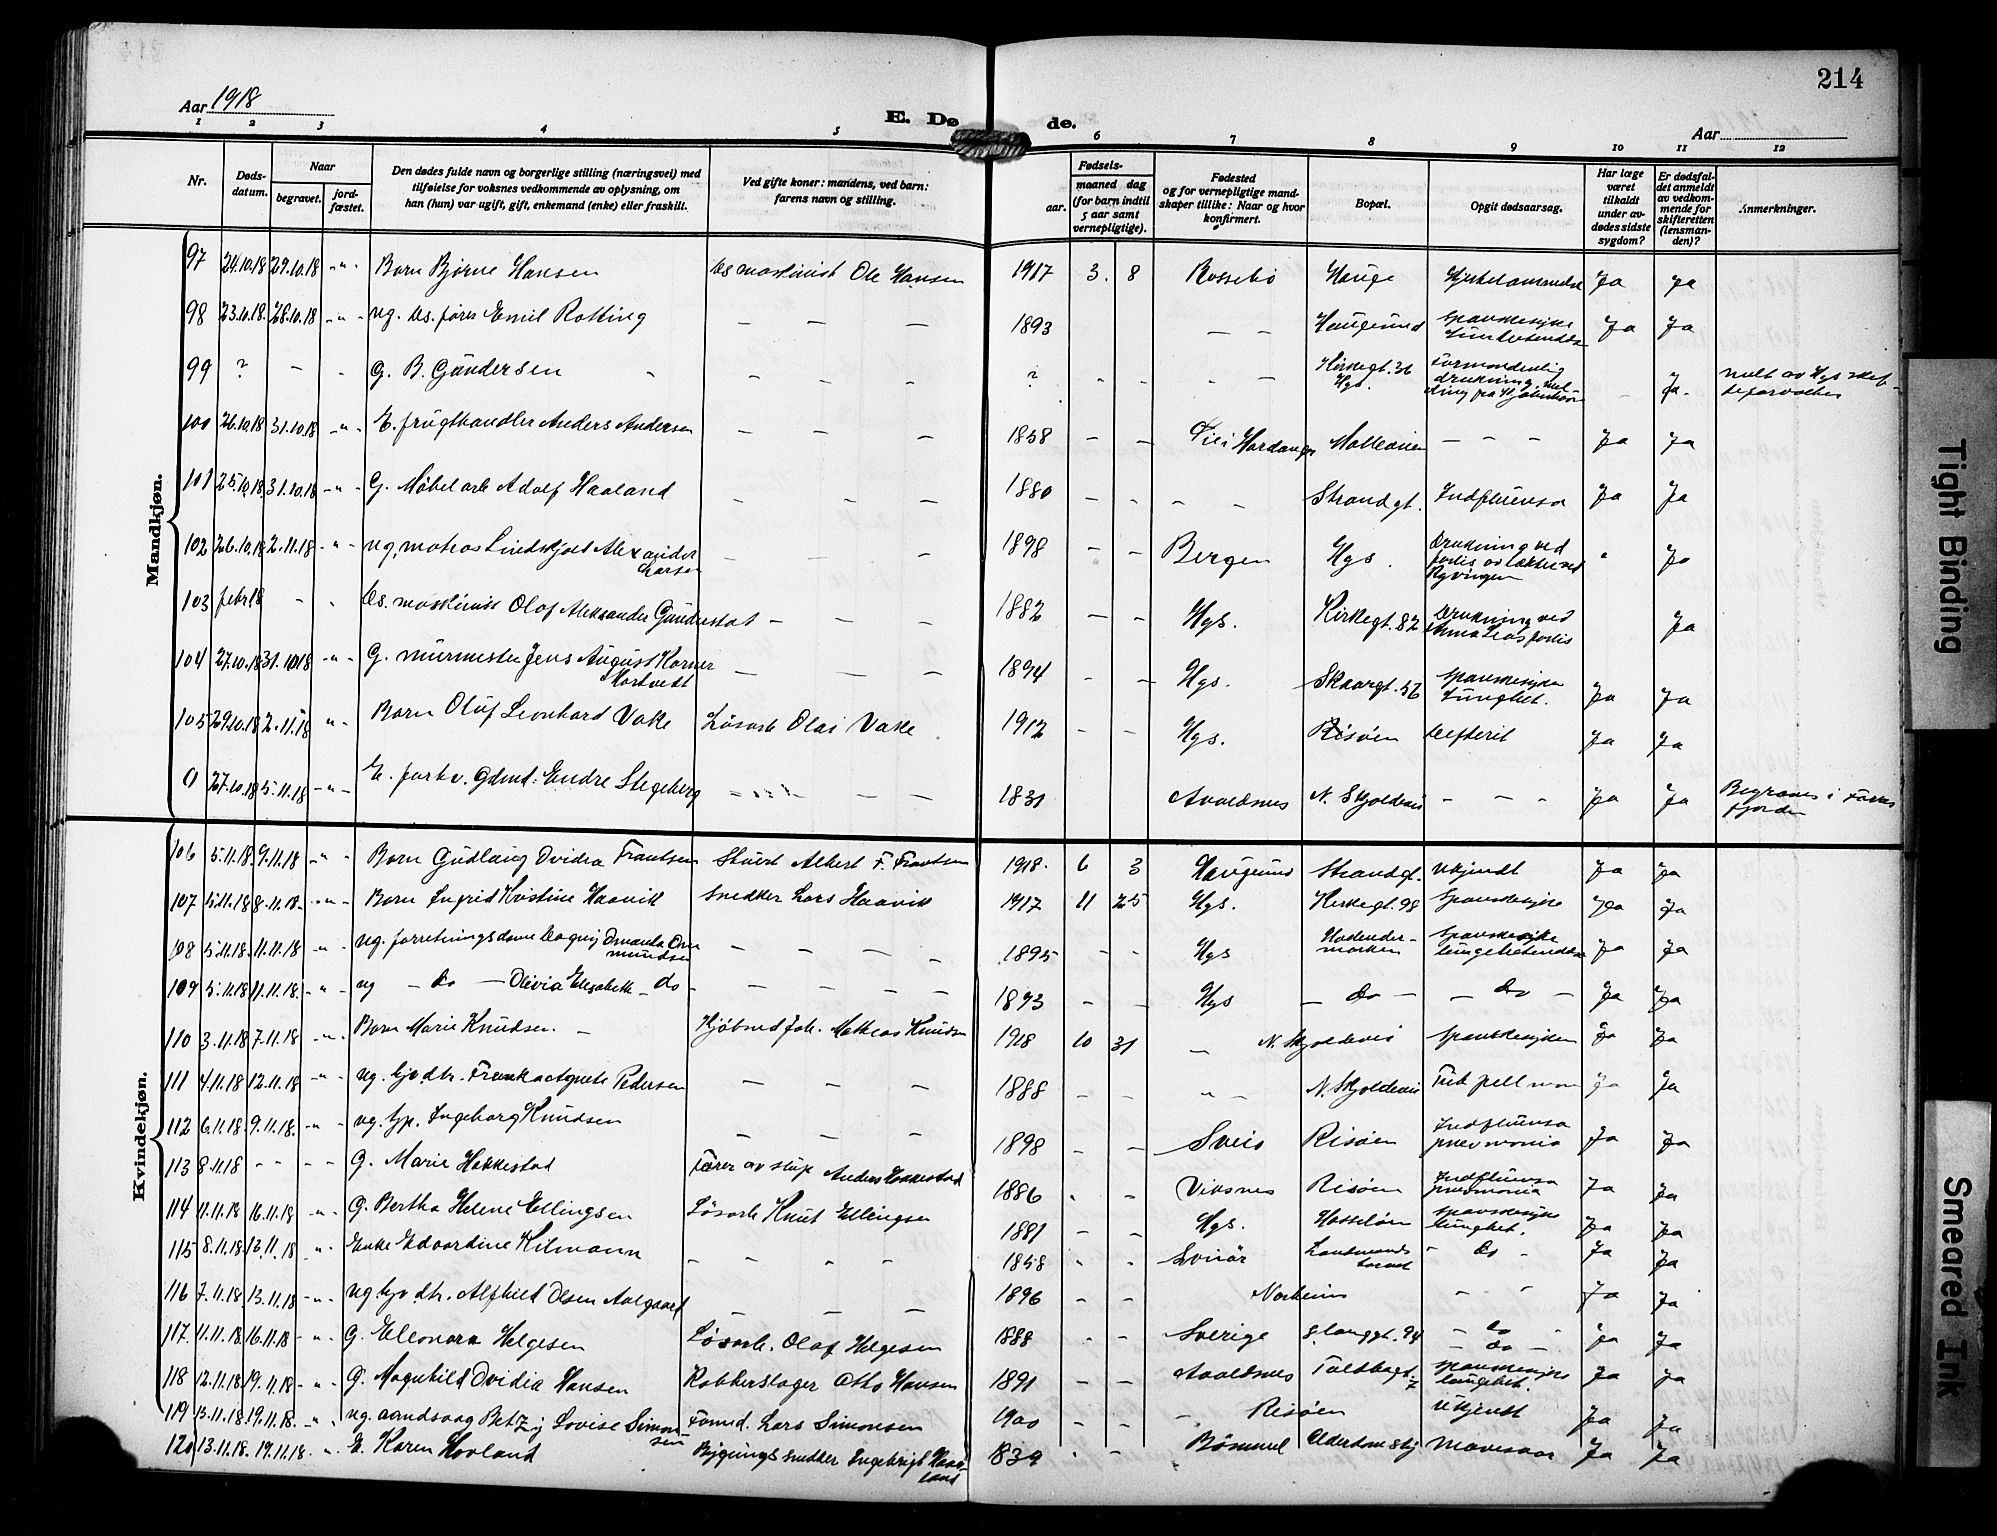 214
Aar 1918
E. Dø de.
Aar
1 2 3 4 5 6 7 8 9 10 11 12
Nr.
Døds-datum.
Naar
begravet.
jord-fæstet.
Den dødes fulde navn og borgerlige stilling (næringsvei) med
tilføielse for voksnes vedkommende av oplysning, om
han (hun) var ugift, gift, enkemand (enke) eller fraskilt.
Ved gifte koner: mandens, ved barn:
farens navn og stilling.
Fødsels-
aar. maaned dag
(for barn indtil
5 aar samt
vernepligtige).
Fødested
og for vernepligtige mand-
skaper tillike: Naar og hvor
konfirmert.
Bopæl.
Opgit dødsaarsag.
Har læge
været
tilkaldt
under av-
dødes sidste
sygdom?
Er dødsfal-
det anmeldt
av vedkom-
mende for
skifteretten
(lensman-
den)?
Anmerkninger.
Mandkjøn.
97 24.10.18 29.10.18 -"- Barn Bjørne Hansen maskinist Ole Hansen 1917 3. 8 Rossebø Hauge Ja Ja
98 23.10.18. 28.10.18 -"- ug. Emil Rotting — — — 1893 — — Haugesund Spanskesyke Ja Ja
99 ? - - G. B. Gundersen - ? - - - - Kirkegt. 36 Hgs. Formodentlig drukning Ja.
100 26.10.18 31.10.18 -"- E. frugthandler Anders Andersen — — — 1858 - - Hardanger - - - Ja Ja
101 25.10.18 31.10.18 -"- G. Møbelarb Adolf Haaland — — — 1880 - - - - Strandgt. Indfluensa Ja Ja
102 26.10.18 2.11.18 -"- ug. matros Lindskjold Alexander Larsen — — — 1898 - - Bergen Hgs. Drukning ved forlis av ved Ryvingen Ja
103 febr. 18 - - maskinist Olaf Aleksander Gundestat - - - 1882 - - Hgs. Kirkegt. 82 Drukning ved forlis Ja
104 27.10.18 31.10.18 -"- G. murmester Jens August Korner Hortvedt — — — 1894 - - Hgs. Skaargt. 56 Spanskesyke Lungebet. Ja Ja
105 29.10.18 2.11.18 "- Barn Oluf Leonhard Vake Løsarb Olai Vake 1912 - - Hgs. Risøen Defterit Ja Ja
0 27.10.18 5.11.18 -"- E. forhv. Gdmd: Endre Stegeberg — — — 1831 Avaldsnes N. Skjoldevei - - - Ja Ja Begraves i Førresfjorden
Kvindekjøn.
106 5.11.18 9.11.18 -"- Barn Gudlaug Ovidia Frantsen Stuert Albert F. Frantsen 1918. 6 3 Haugesund Strandgt. ukjendt Ja Ja
107 5.11.18 8.11.18. -"- Barn Ingrid Kristine Haavik Snedker Lars Haavik 1917 11 25 Hgs. Kirkegt. 98 Spanskesyke Ja Ja
108 5.11.18 11.11.18 "- ug. forretningsdame Dagny Amanda Omundsen — — — — 1895 - - Hgs Spanskesyke lungebetendelse Ja Ja
109 5.11.18 11.11.18. -"- ug — do — Olivia Elisabeth — do - — — — — 1893 - - Hgs — do — — do — Ja Ja
110 3.11.18 7.11.18 -"- Barn Marie Knudsen. — Kjøbmd Joh. Mathias Knudsen 1918 10 31 — N. Skjoldevei Spanskesyken Ja Ja
111 4.11.18 12.11.18 -"- ug. hjv. dtr. Franka Agnete Pedersen — — — 1888 - - -"- N. Skjoldevei Ja Ja
112 6.11.18. 9.11.18. -"- ug. tjp. Ingeborg Knudsen — — — 1898 - - Sveio Risøen Indfluensa pneumonia Ja Ja
113 8.11.18 - - - - G. Marie Hakkestad Fører av slup Anders Hakkestad 1886 - - Viksnes Risøen Indfluensa pneumonia Ja Ja
114 11.11.18 16.11.18 "- G. Bertha Helene Ellingsen Løsarb Knut Ellingsen 1881 - - Hgs. Hasseløen Spanskesyke lungebet. Ja Ja
115 8.11.18 13.11.18 "- Enke Edvardine Kilmann - - - - 1858 - - - do - Ja Ja
116 7.11.18. 13.11.18 -"- ug hjv. dtr. Alfhild Olsen Aalgaard — — — 1896 - - Norheim - - Ja Ja
117. 11.11.18. 16.11.18 -"- G. Eleonora Helgesen Løsarb. Olaf Helgesen 1888 - - Sverige S. langgt. 94 - do - - do - Ja Ja
118 12.11.18. 19.11.18 -"- G. Magnhild Ovidia Hansen Kobberslager Otto Hansen 1891 - - Avaldsnes Toldbogt. 7 Spanskesyke lungebet. Ja Ja
119 13.11.18. 19.11.18. "- ug. aandssvag Betzy Lovise Simonsen Formd. Lars Simonsen 1900 - - - Risøen ukjendt Ja Ja
120 13.11.18. 19.11.18. "- E. Karen Hovland Bygningssnedker Ingebrigt Haavland 1839 - - Bømmel Alderdomshj Mavesaar Ja Ja
Tight Binding
Smeared Ink